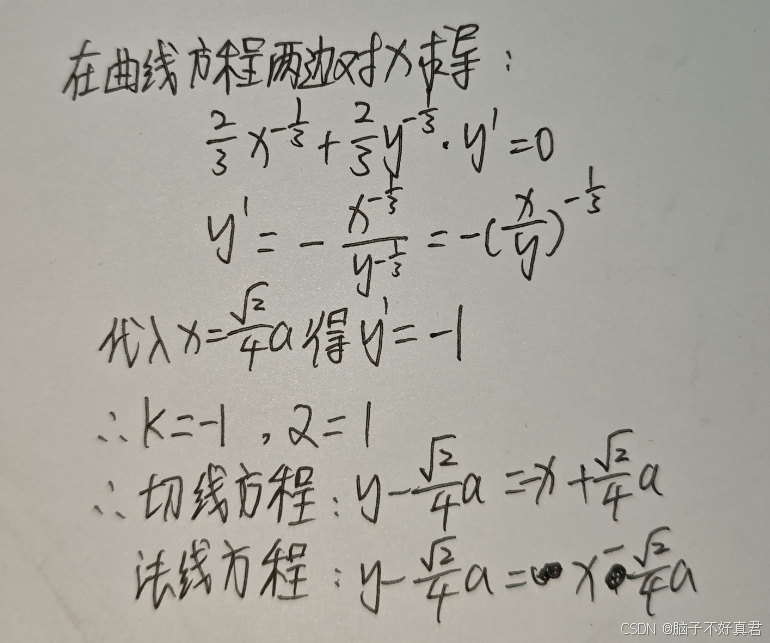 在曲线方程两边对x求导：
2/3 x^(-1/3) + 2/3 y^(-1/3) · y' = 0
y' = - x^(-1/3) / y^(-1/3) = -(x/y)^(-1/3)
代入x=√2/4 a得y'=-1
∴k=-1，2=1
∴切线方程：y-√2/4 a=-x+√2/4 a
法线方程：y-√2/4 a=x-√2/4 a
CSDN @脑子不好真君